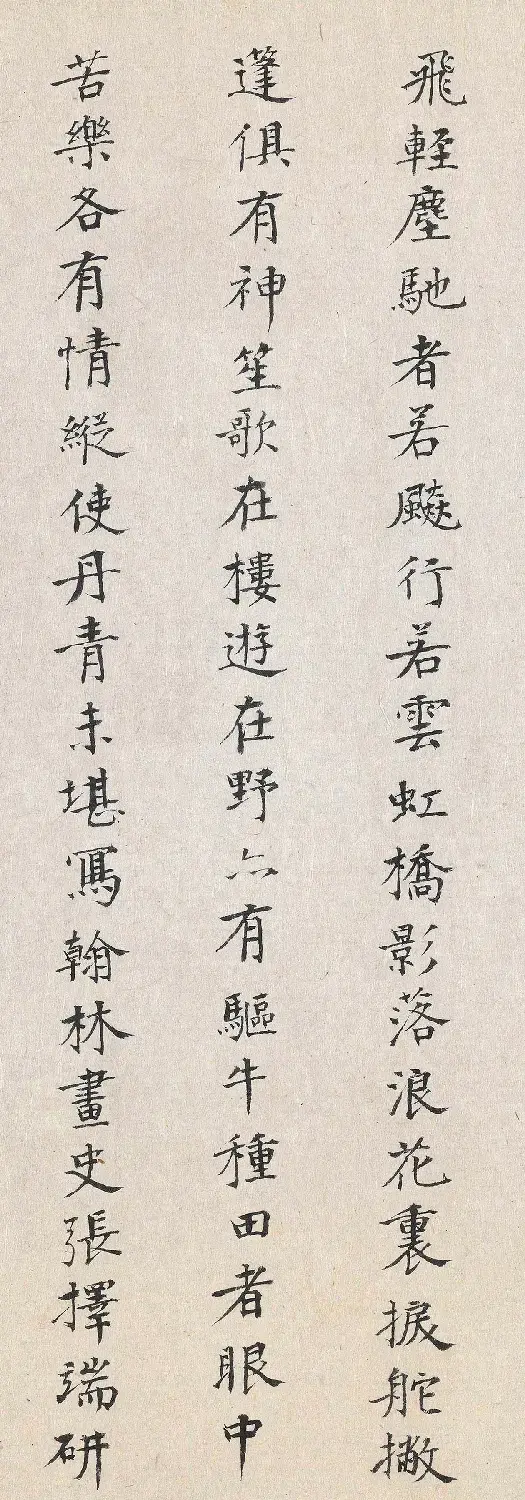 飛輊塵馳者若飈行若雲虹橋影落浪花裏捩舵撇
蓬俱有神笙歌在樓遊在野亦有驅牛種田者眼中
苦樂各有情縱使丹青未堪寫翰林畫史張擇端研